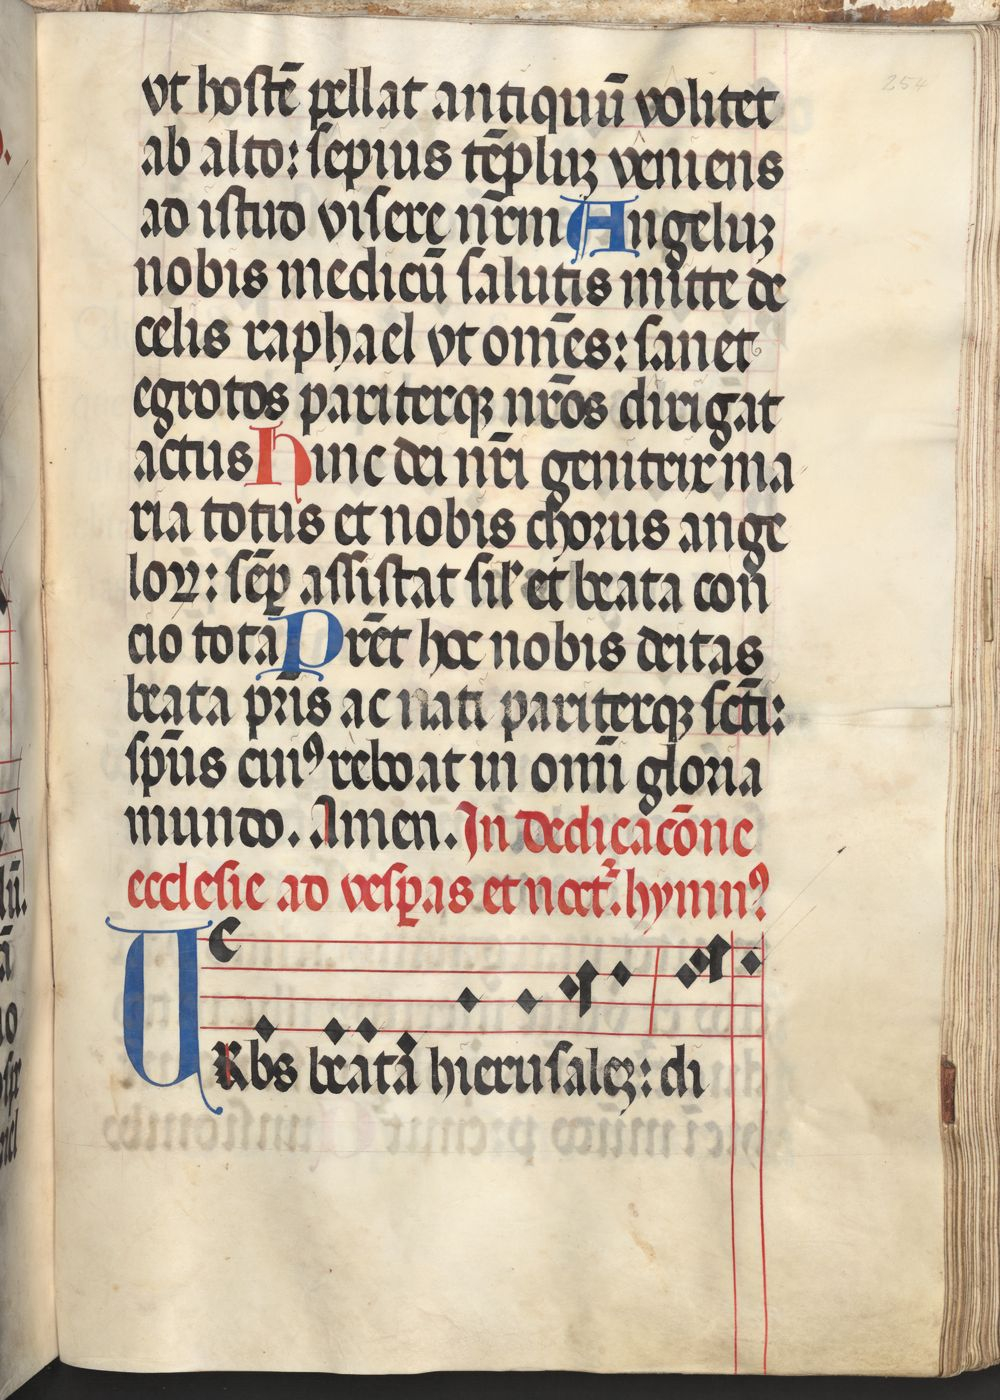 254
vt hostē pellat antiquū volitet
ab alto: sepius tēpluꝫ veniens
ad istud visere nr̄m Angeluꝫ
nobis medicū salutis mitte de
celis raphael vt om̄es: sanet
egrotos pariterqꝫ nr̄os dirigat
actus Hinc dei nr̄i genitrix ma
ria totus et nobis chorus ange
loꝝ: sēꝑ assistat sił et beata con
cio tota Pr̄et hoc nobis deitas
beata pr̄is ac nati pariterqꝫ sc̄ti:
sp̄us cuiꝰ reboat in om̄i gloria
mundo. Amen. In dedicacōne
ecclesie ad vesꝑas et noct. hymnꝰ
URbs beata hierusaleꝫ: di